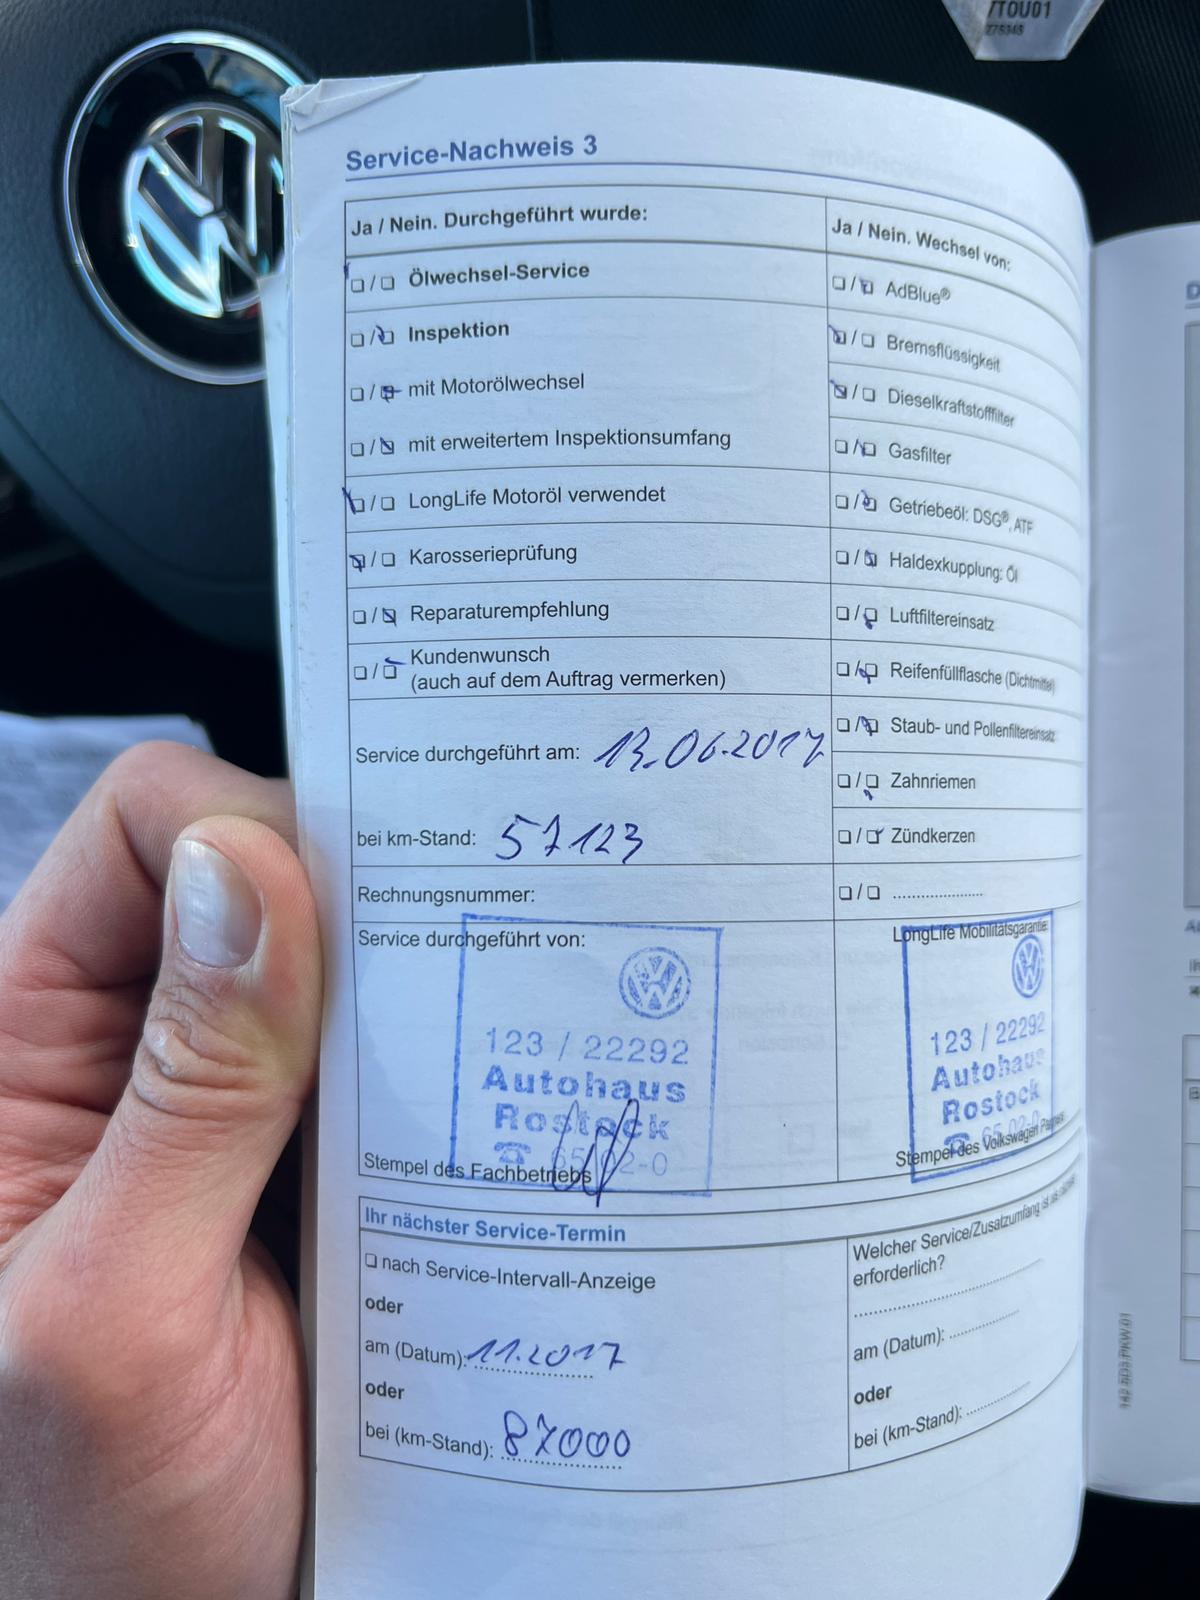 7TOU01
275348
Service-Nachweis 3
Ja / Nein. Durchgeführt wurde:
☐ / ☐ Ölwechsel-Service
☐ / ☐ Inspektion
☐ / ☐ mit Motorölwechsel
☐ / ☐ mit erweitertem Inspektionsumfang
☐ / ☐ LongLife Motoröl verwendet
☐ / ☐ Karosserieprüfung
☐ / ☐ Reparaturempfehlung
☐ / ☐ Kundenwunsch
(auch auf dem Auftrag vermerken)
Service durchgeführt am: 13.06.2017
bei km-Stand: 57123
Rechnungsnummer:
Service durchgeführt von:
123 / 22292
Autohaus
Rostock
☎ 65 02-0
Stempel des Fachbetriebs
Ja / Nein. Wechsel von:
☐ / ☐ AdBlue®
☐ / ☐ Bremsflüssigkeit
☐ / ☐ Dieselkraftstofffilter
☐ / ☐ Gasfilter
☐ / ☐ Getriebeöl: DSG®, ATF
☐ / ☐ Haldexkupplung: Öl
☐ / ☐ Luftfiltereinsatz
☐ / ☐ Reifenfüllflasche (Dichtmittel)
☐ / ☐ Staub- und Pollenfiltereinsatz
☐ / ☐ Zahnriemen
☐ / ☐ Zündkerzen
☐ / ☐ ....................
LongLife Mobilitätsgarantie:
123 / 22292
Autohaus
Rostock
☎ 65 02-0
Stempel des Volkswagen Partners:
Ihr nächster Service-Termin
☐ nach Service-Intervall-Anzeige
oder
am (Datum): 11.2017
oder
bei (km-Stand): 87000
Welcher Service/Zusatzumfang ist als
erforderlich?
am (Datum): ..............
oder
bei (km-Stand): .............
162.5D3.PKW.01